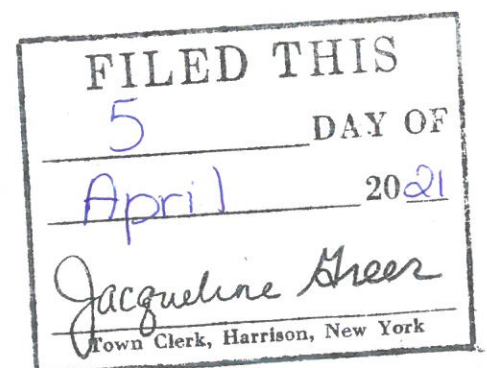 FILED THIS
5 DAY OF
April 2021
Jacqueline Greer
Town Clerk, Harrison, New York